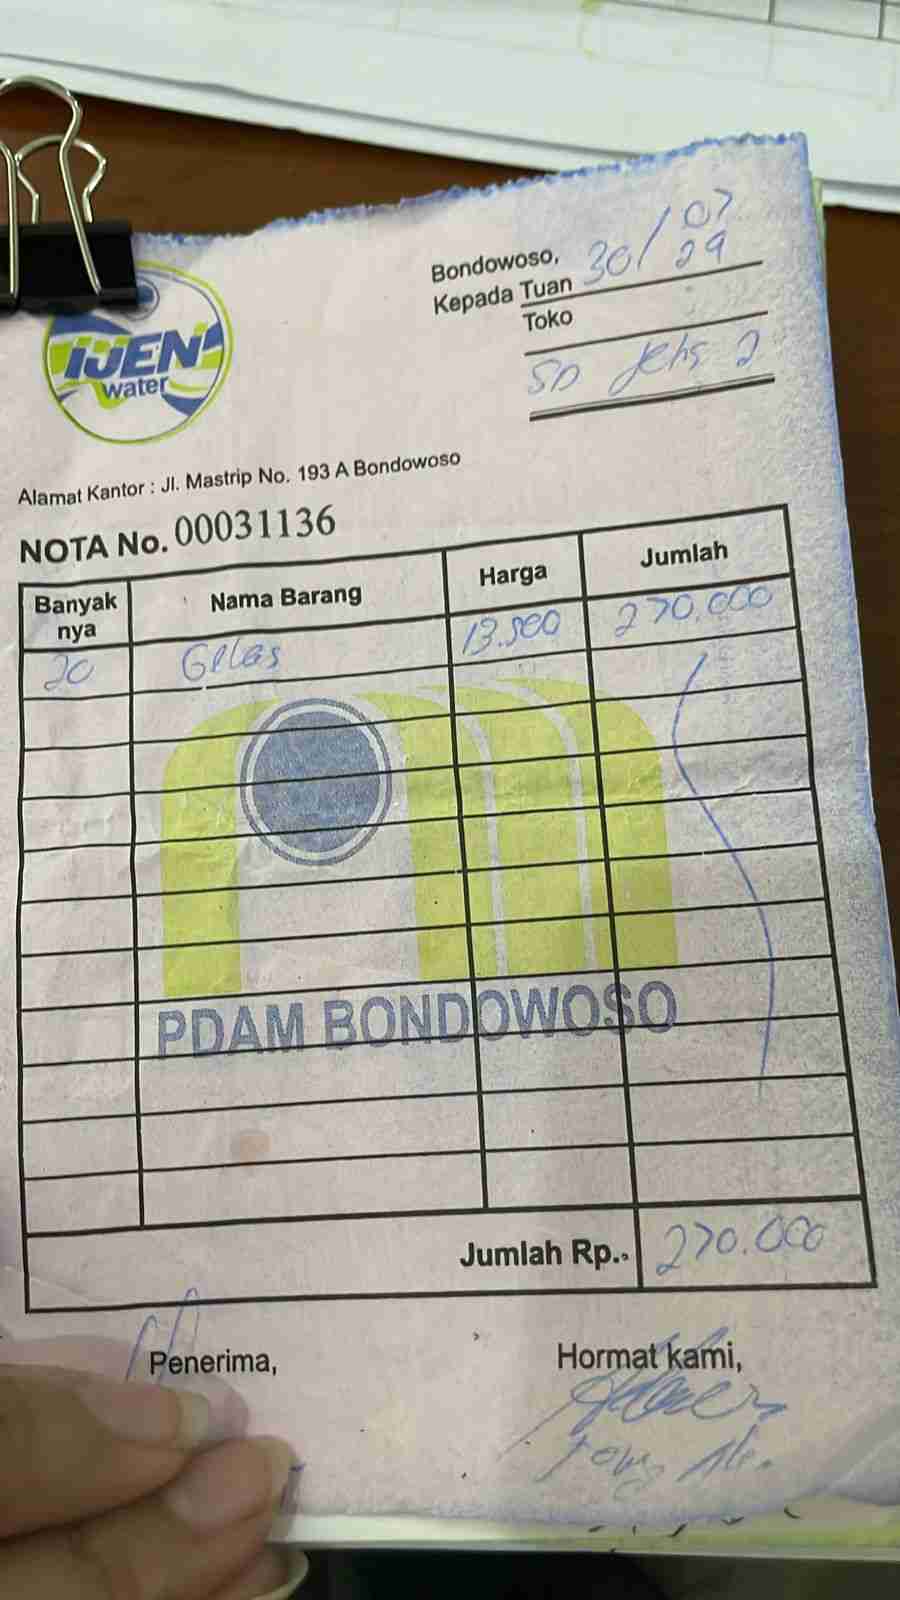 IJEN
water
Bondowoso, 30/07
Kepada Tuan 29
Toko
SD Jehs 2
Alamat Kantor : Jl. Mastrip No. 193 A Bondowoso
NOTA No. 00031136
Banyak nya Nama Barang Harga Jumlah
20 Gelas 13.500 270.000
PDAM BONDOWOSO
Jumlah Rp.. 270.000
Penerima, Hormat kami,